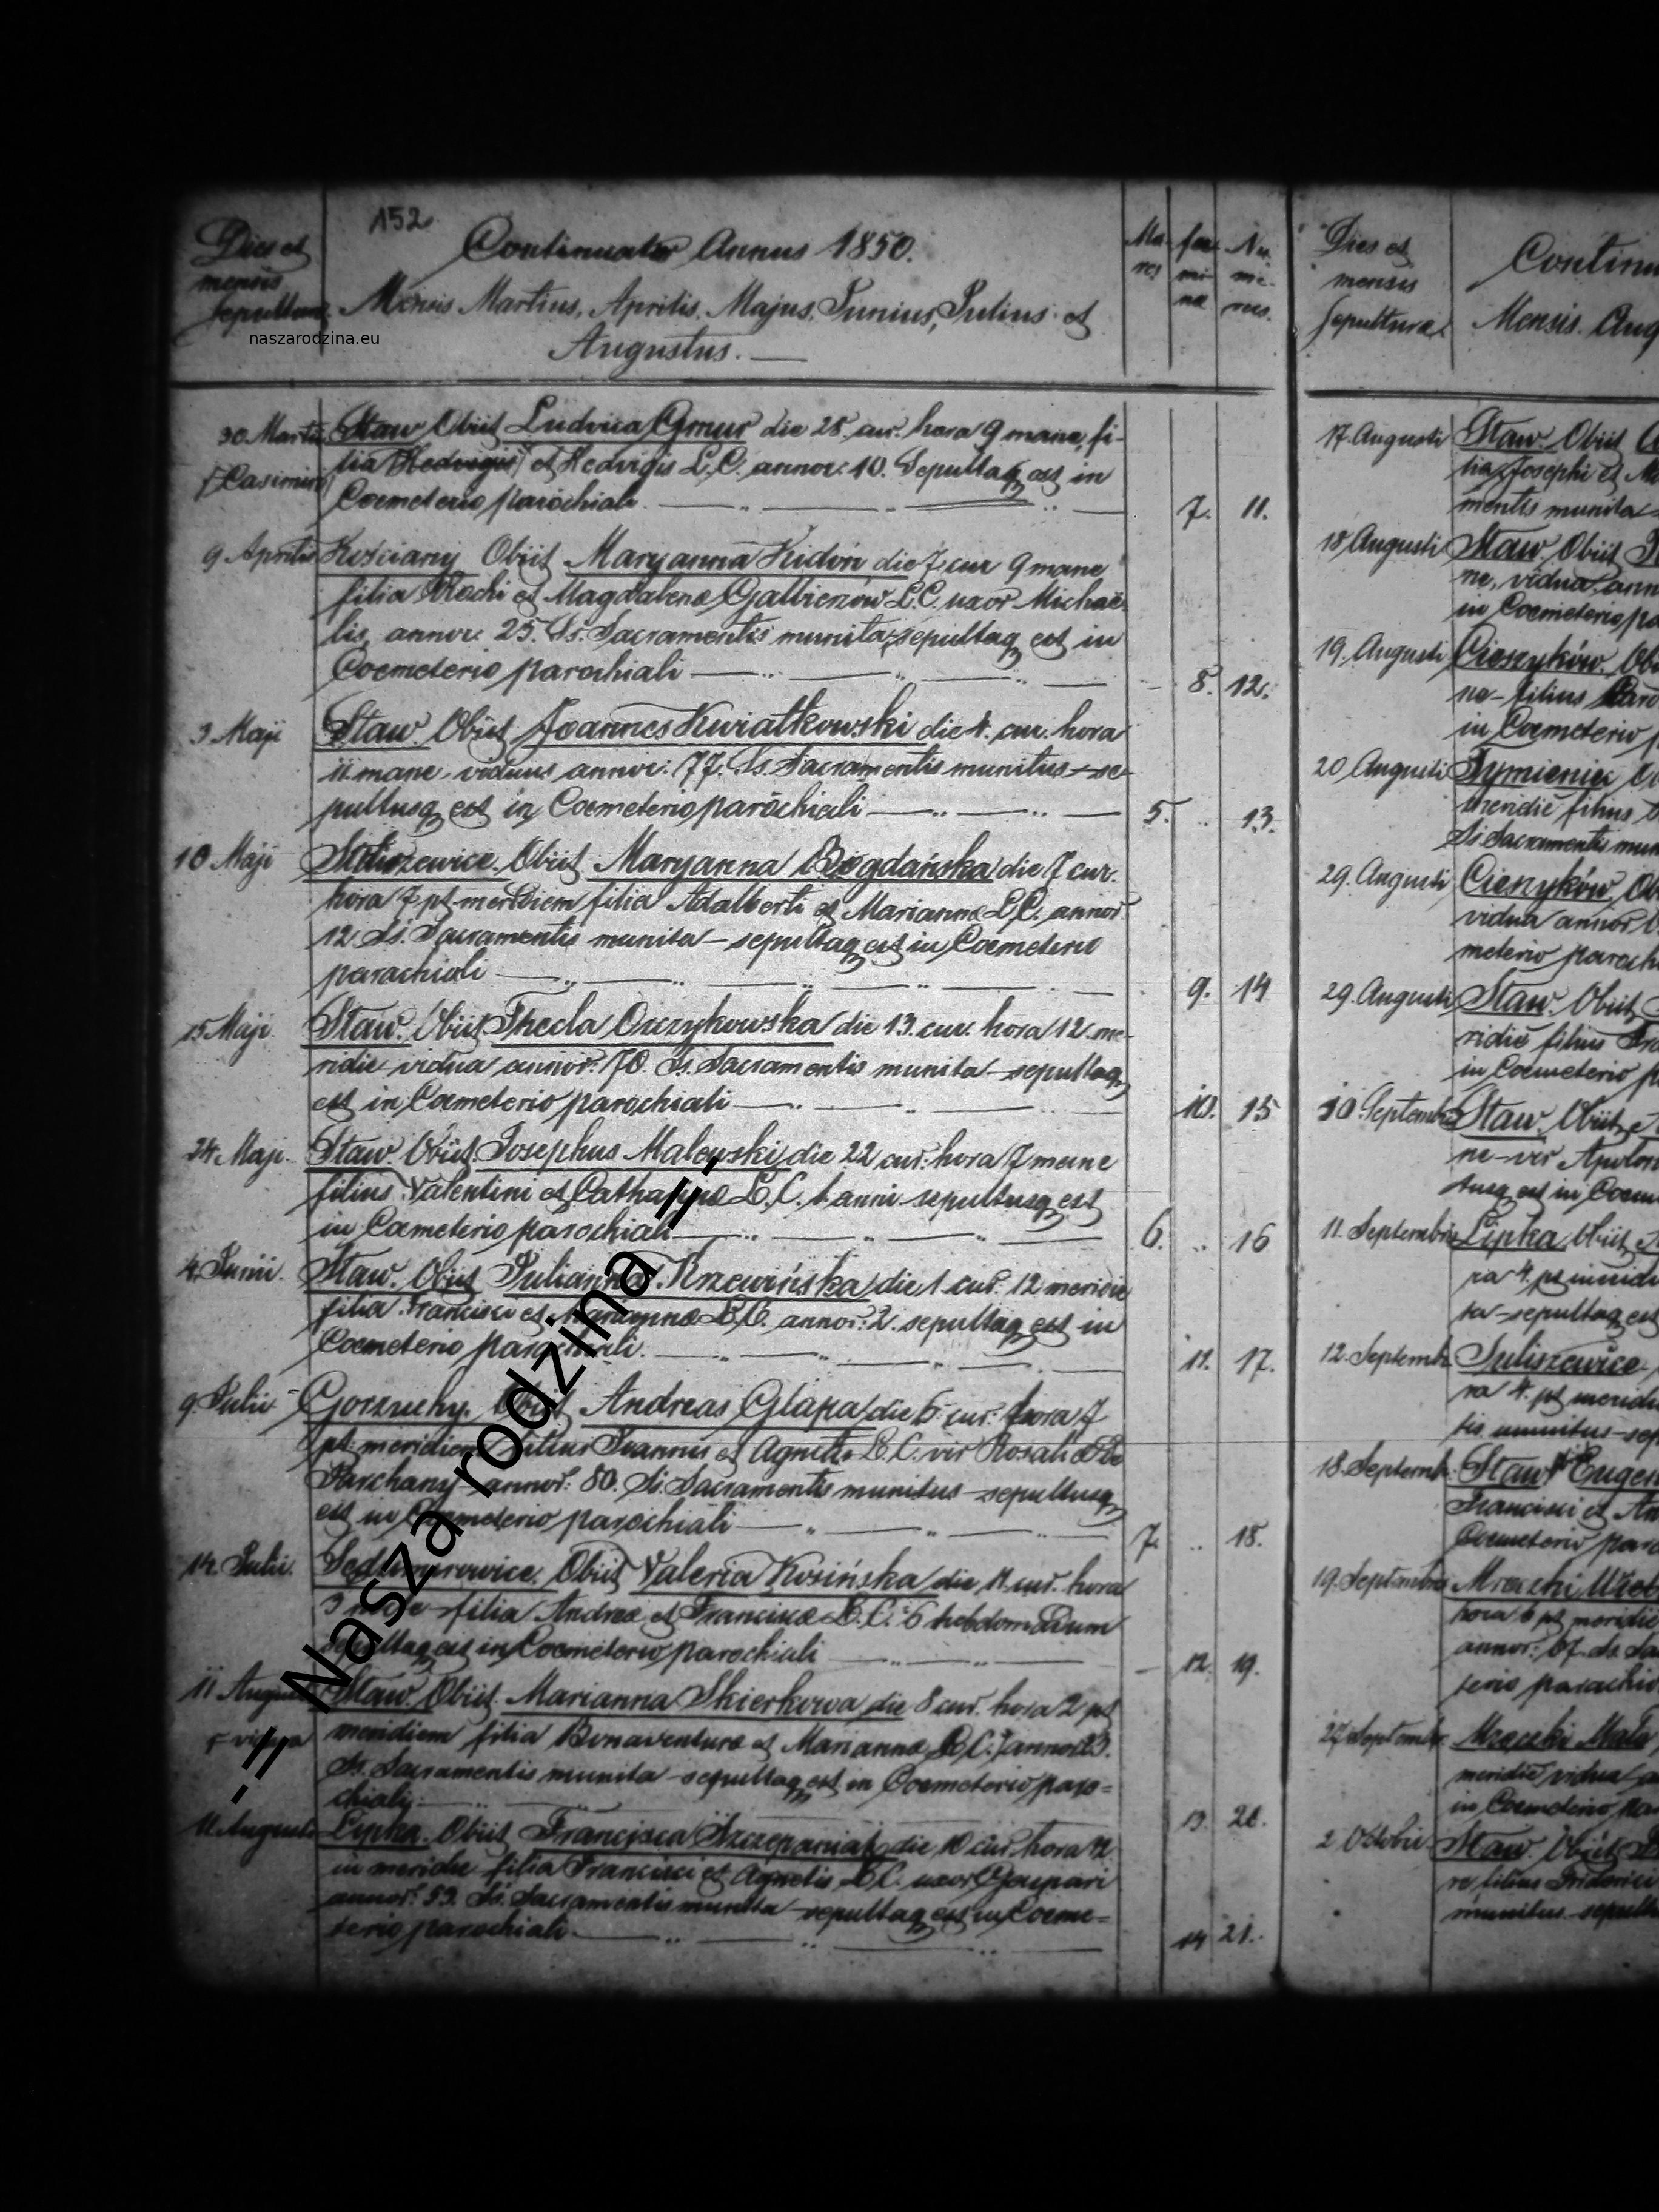 152.
Dies et
mensis
sepulturæ
Continuatur Annus 1850.
Mensis Martius, Aprilis, Majus, Junius, Julius et
Augustus.
Ma-
res
fœ-
mi-
næ
Nu-
me-
rus.
naszarodzina.eu
30 Martii Staw Obiit Ludvica Gmur die 28 cur. hora 9 mane, fi-
(Casimiri) lia et Hedvigis L.C. annor: 10. Sepultaq est in
Coemeterio parochiali 7. 11.
9 Aprilis Kościany Obiit Maryanna Kidoń die 7 cur 9 mane
filia Rochi et Magdalenæ L.C. uxor Michaë-
lis, annor: 25. Ss. Sacramentis munita, sepultaq est in
Coemeterio parochiali 8. 12.
Maji Staw. Obiit Joannes Kwiatkowski die 4. cur. hora
11 mane, viduus annor: 77. Ss. Sacramentis munitus - se-
pultusq est in Coemeterio parochiali 5. 13.
10 Maji Obiit Maryanna Bogdańska die 7 cur.
hora 7 pt meridiem filia Adalberti et Mariannæ L.C. annor
12 Ss. Sacramentis munita - sepultaq est in Coemeterio
parachiali 9. 14
15 Maji. Staw. Obiit Thecla die 13. cur. hora 12 me-
ridie vidua annor: 70. Ss. Sacramentis munita - sepultaq
est in Coemeterio parochiali 10. 15
24 Maji. Staw Obiit Josephus Malewski die 22 cur: hora 7 mane
filius Valentini et L.C. 1 anni sepultusq est
in Coemeterio parochiali 6. 16
4 Junii. Staw. Obiit Julianna Krzewińska die 1 cur. 12 meridie
filia Francisci et Mariannæ L.C. annor: 2. sepultaq est in
Coemeterio parochiali. 11. 17.
9 Julii Gorzuchy. Obiit Andreas Glapa die 6 cur: hora 7
pt meridiem filius Joannis et Agnetis L.C. vir Rosaliæ de
Parchany annor: 80. Ss. Sacramentis munitus - sepultusq
est in Coemeterio parochiali 7. 18.
14 Julii. Obiit Valeria Kosińska die 11 cur. hora
filia Andreæ et Franciscæ L.C. 6 hebdomadum
sepultaq est in Coemeterio parochiali 12. 19.
11 Augusti Staw. Obiit Marianna Skierkowa die 8 cur. hora 2 pt
meridiem filia Bonaventuræ et Mariannæ L.C. annor: 23.
Ss. Sacramentis munita - sepultaq est in Coemeterio paro=
chiali 13 20.
11 Augusti Lipka. Obiit Francisca Szczepaniak die 10 cur. hora 12
in meridie filia Francisci et Agnetis L.C. uxor Gaspari
annor: 53. Ss. Sacramentis munita sepultaq est in Coeme=
terio parochiali 14 21.
-= Nasza rodzina =-
Dies et
mensis
sepulturæ
Continu
Mensis. Aug
17. Augusti Staw. Obiit
lia Josephi et M
mentis munita
18 Augusti Staw. Obiit
ne, vidua, ann
in Coemeterio pa
19. Augusti Obi
ne - filius
in Coemeterio p
20 Augusti Tymieniec
meridie filius
Ss Sacramentis mun
29. Augusti Ob
vidua annor
meterio paroch
29. Augusti Staw. Obiit
ridie filius Fra
in Coemeterio p
10. Septembr Staw. Obiit
ne - vir Apolon
tusq est in Coem
11. Septembris Lipka Obiit
ra 4. pt meridi
ta - sepultaq est
12. Septemb. Suliszewice
ra 4. pt meridi
tis munitus - sep
18. Septemb. Staw Eugen
Francisci et An
Coemeterio paro
19. Septembris
hora 6 pt meridie
annor: 67. Ss. Sa
terio parochia
27 Septembr. Mała
meridie vidua
in Coemeterio pa
2 Octobris Staw. Obiit
re filius Friderici
munitus sepult